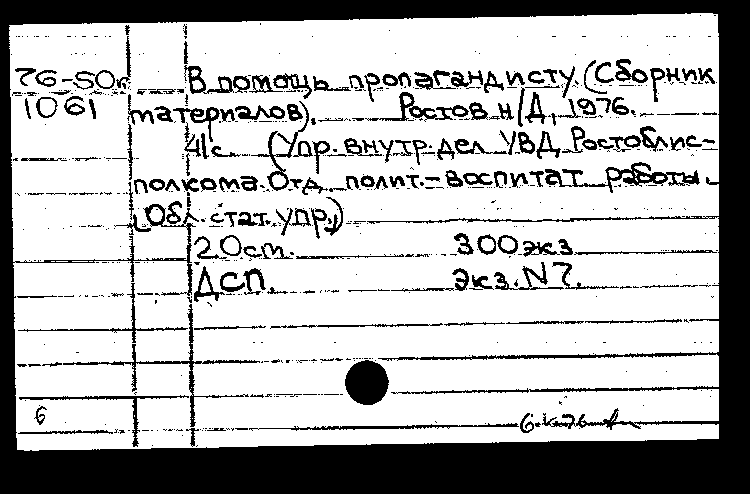 76-50к В помощь пропагандисту (Сборник
1061 материалов). Ростов н/Д, 1976.
41с. (Упр. внутр. дел УВД Ростоблис-
полкома. Отд полит.-воспитат работы.
Обл. стат. упр.)
20см. 300экз
ДСП. Экз. N7.
6